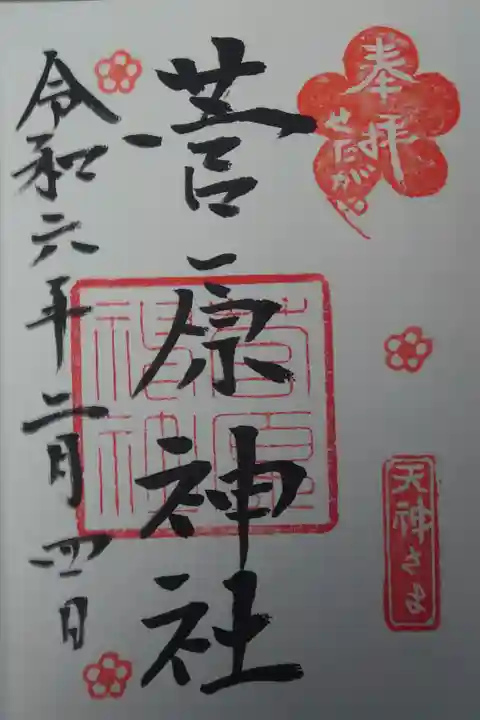 奉拝
せたがや
天神さま
菅原神社
令和六年二月四日